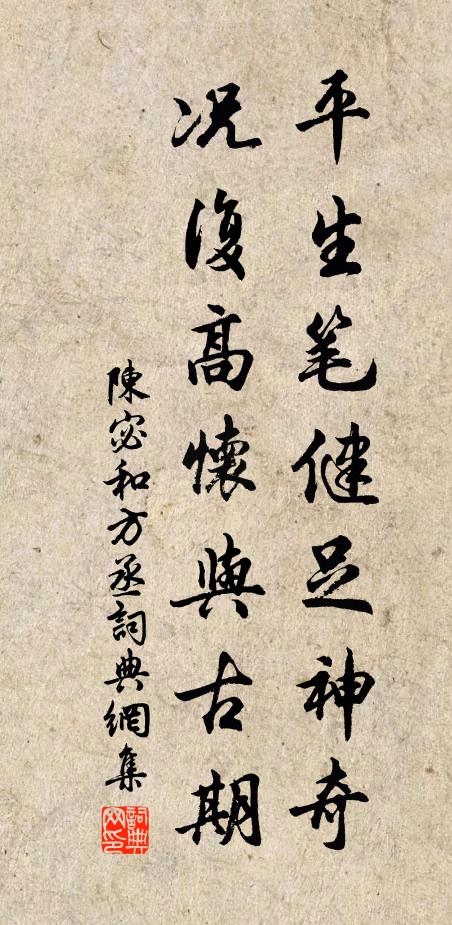 平生笔健足神奇
况復高懷與古期
陳宓和方丞詞典網集
詞典网印